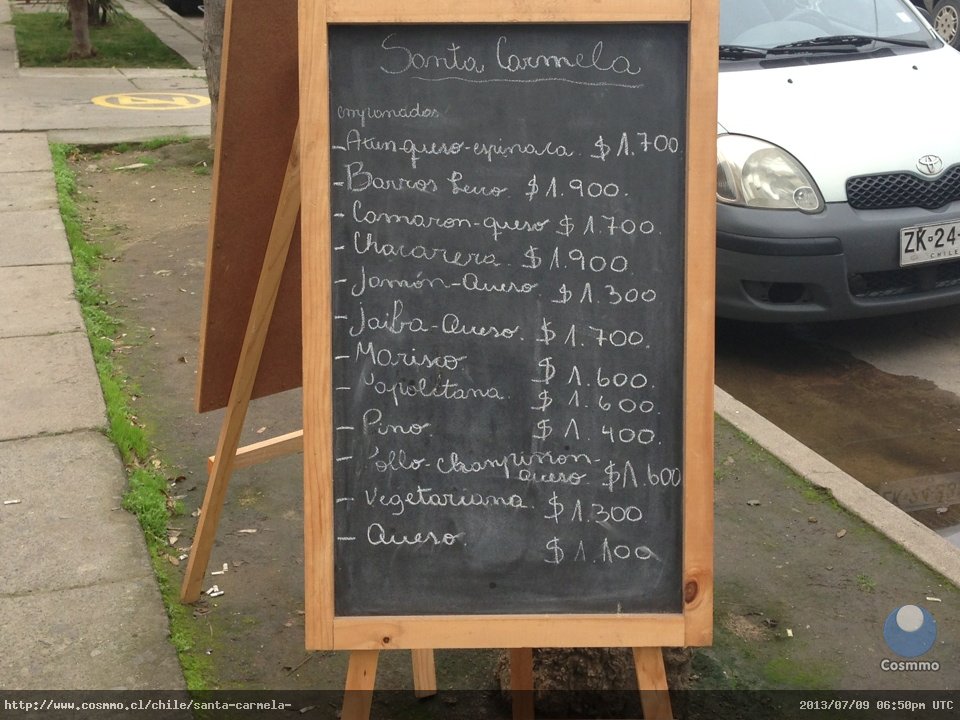 Santa Carmela
empanadas
- Atun-queso-espinaca. $1.700
- Barros Luco $1.900.
- Camaron-queso $1.700.
- Chacarera $1.900.
- Jamón-Queso $1.300
- Jaiba-Queso. $1.700.
- Marisco. $1.600.
- Napolitana. $1.600.
- Pino. $1.400.
- Pollo-champiñon- $1.600
queso
- Vegetariana. $1.300.
- Queso. $1.100
ZK·24
CHILE
Cosmmo
http://www.cosmmo.cl/chile/santa-carmela-
2013/07/09 06:50pm UTC